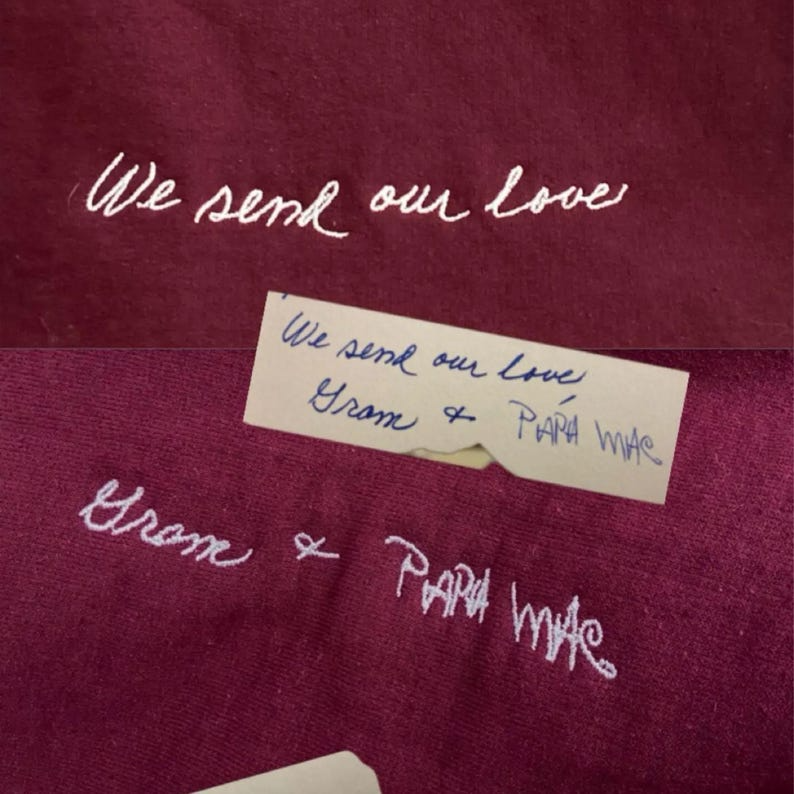 We send our love
We send our love,
Gram & PAPA MAC
Gram & PAPA MAC